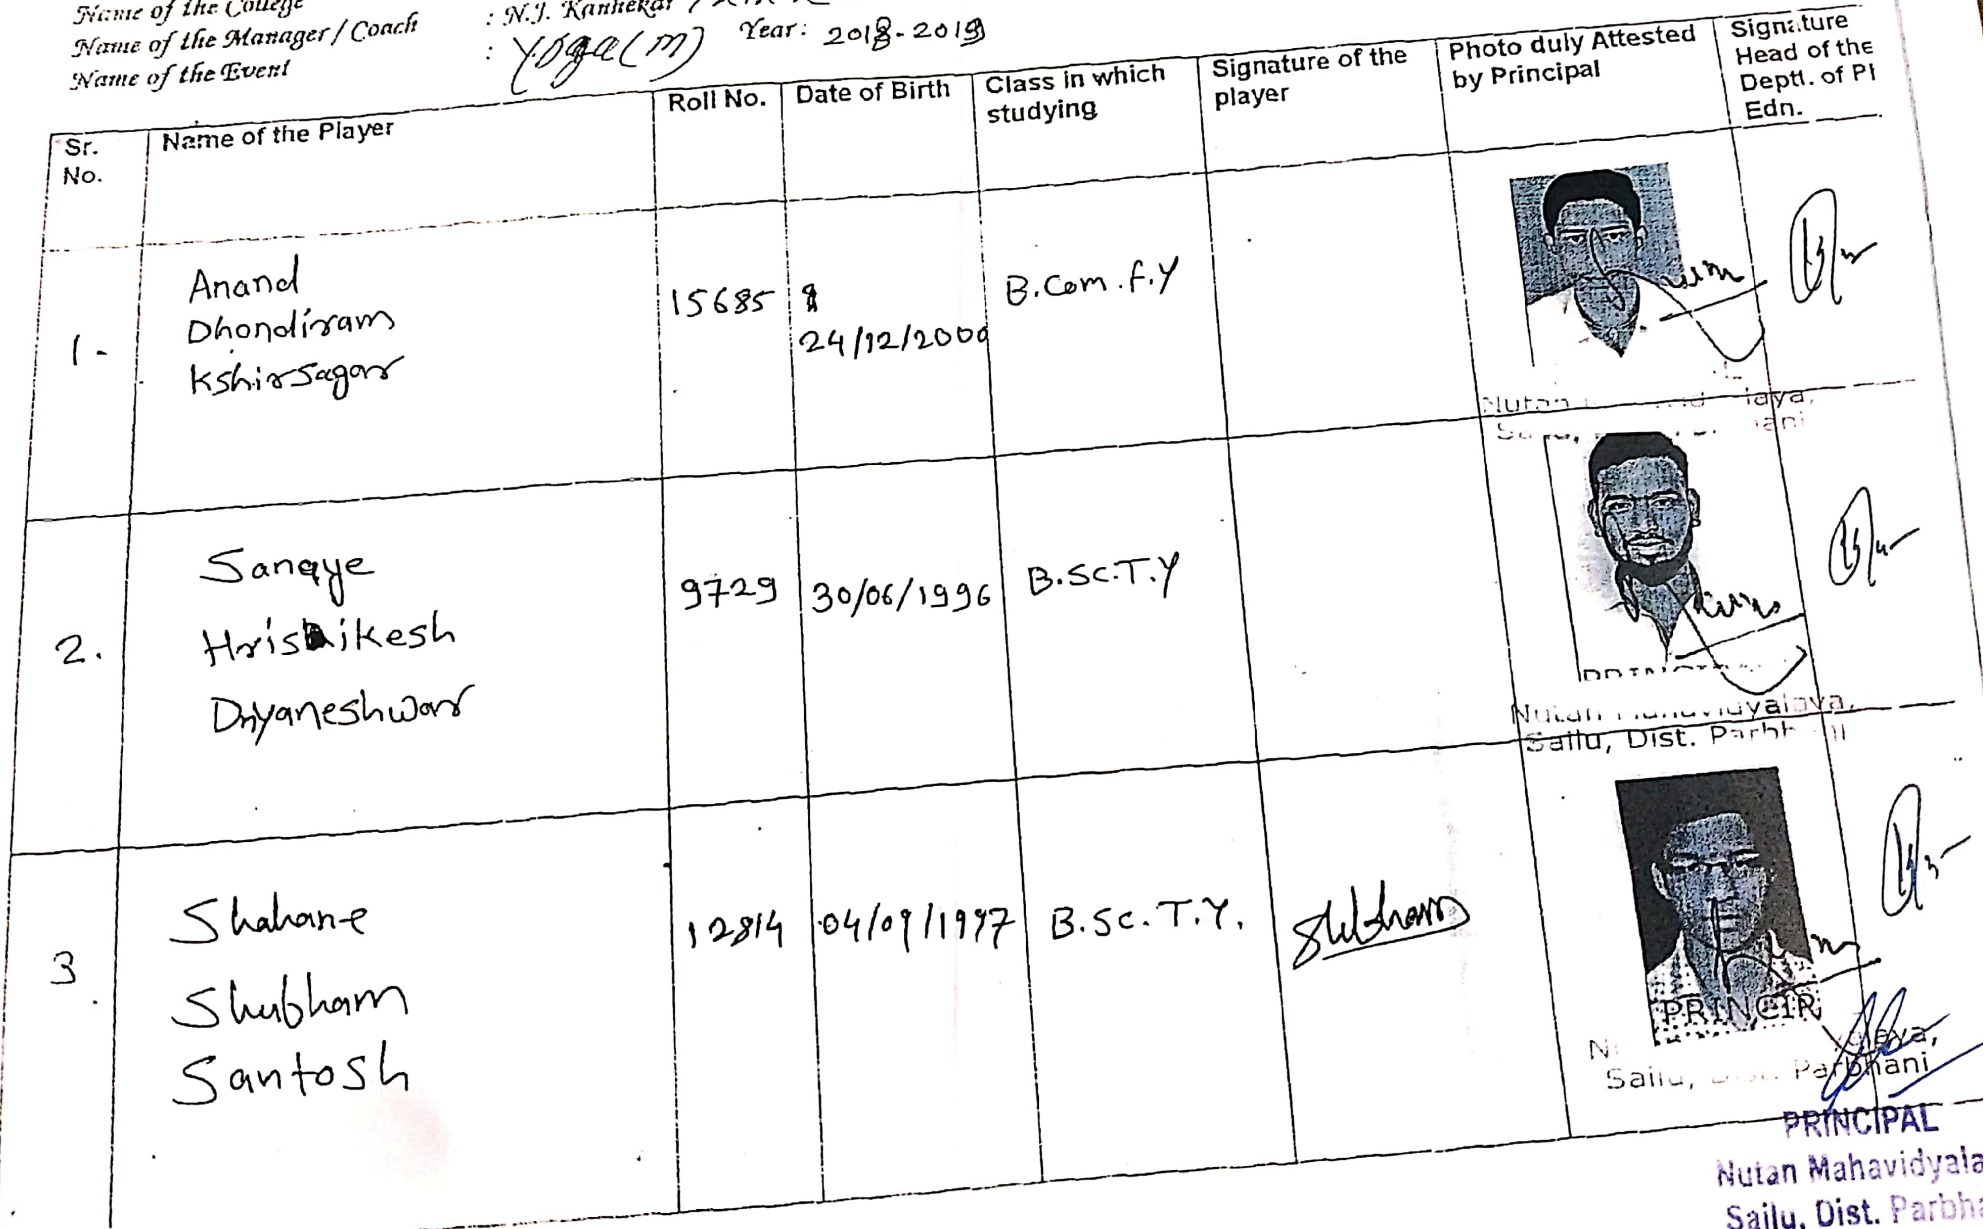 Name of the College
Name of the Manager / Coach : N.J. Kanhekar
Name of the Event : Yoga (m) Year: 2018-2019
Sr. No.
Name of the Player
Roll No.
Date of Birth
Class in which studying
Signature of the player
Photo duly Attested by Principal
Signature Head of the Deptt. of P Edn.
1-
Anand
Dhondiram
Kshirsagar
15685
24/12/2000
B.Com.f.Y
Nutan
2.
Sangye
Hrishikesh
Dnyaneshwar
9729
30/06/1996
B.SC.T.Y
Nutan Mahavidyalaya,
Sailu, Dist. Parbhani
3
Shahane
Shubham
Santosh
12814
04/09/1997
B.Sc.T.Y.
Shubham
PRINCIP
Sailu, Dist. Parbhani
PRINCIPAL
Nutan Mahavidyala
Sailu, Dist. Parbha